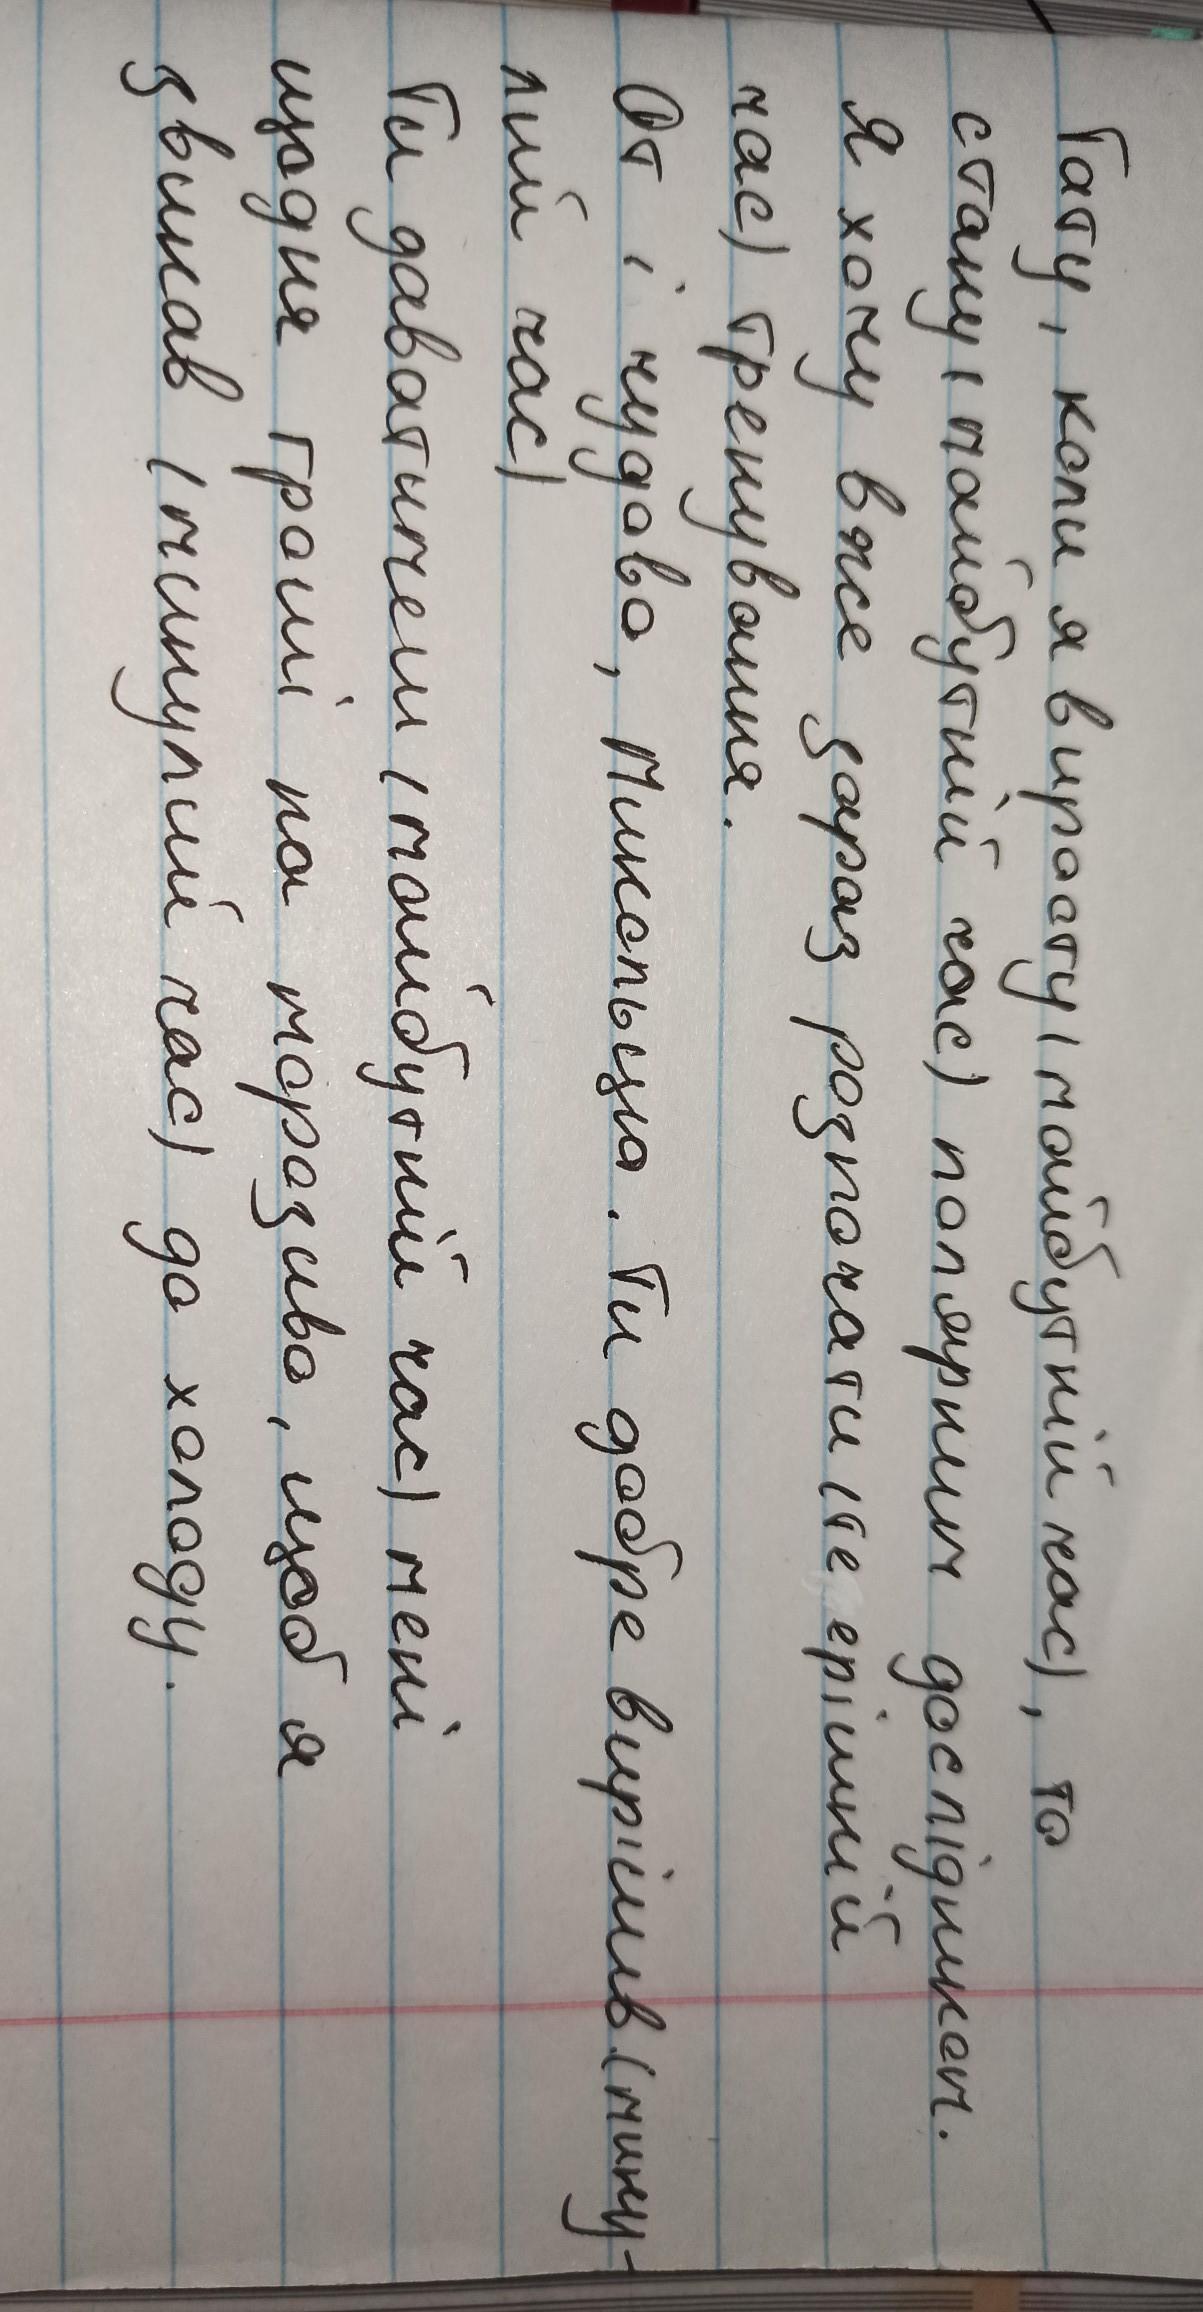 Тату, коли я виросту (майбутній час), то
стану (майбутній час) полярним дослідником.
Я хочу вже зараз розпочати (теперішній
час) тренування.
От і чудово, Микольцю. Ти добре вирішив (мину-
лий час)
Ти даватимеш (майбутній час) мені
щодня гроші на морозиво, щоб я
звикав (минулий час) до холоду.